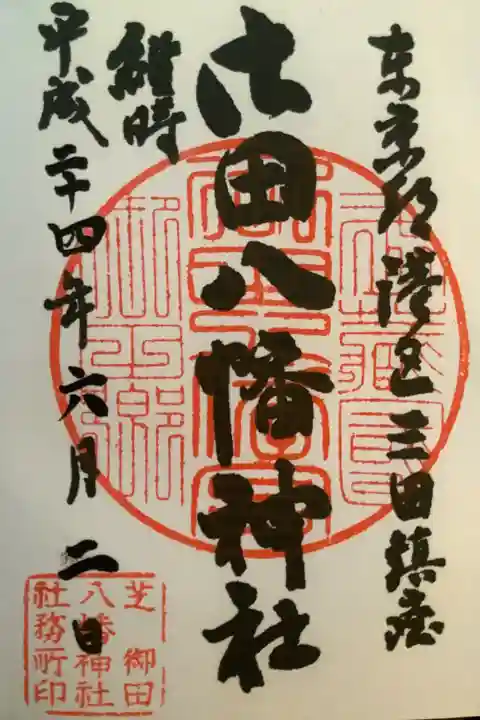 东京都港区三田鎮座
御田八幡神社
維時
平成二十四年六月二日
芝御田
八幡神社
社務所印